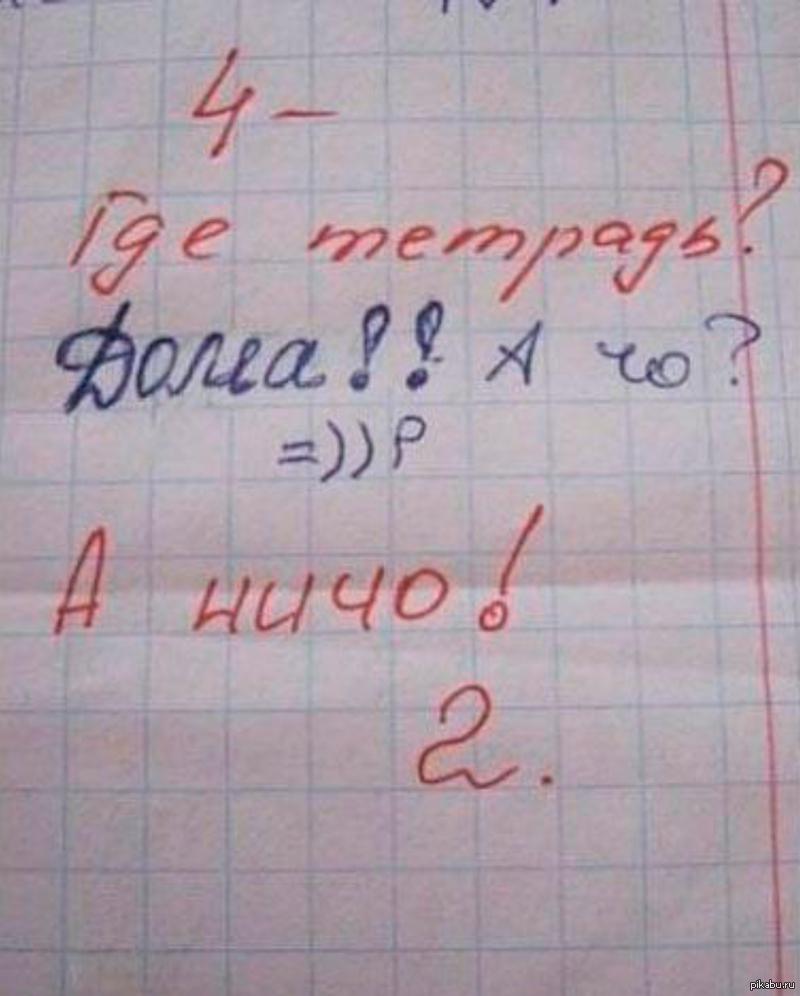 4 –
Где тетрадь?
Дома!! А чо?
=))P
А ничо!
2.
pikabu.ru